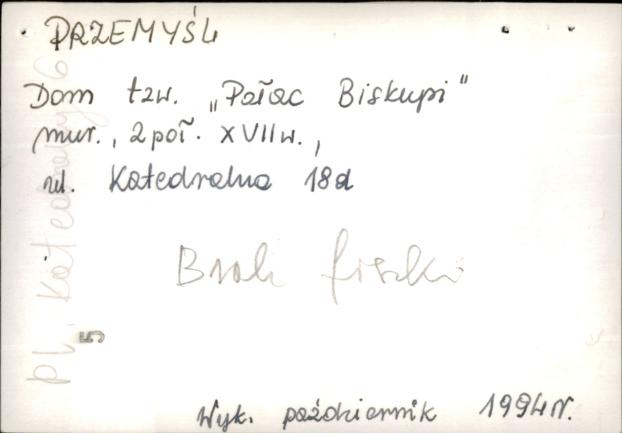 PRZEMYŚL
Dom tzw. „Pałac Biskupi"
mur., 2 poł. XVII w.,
ul. Katedralna 18d
Brak fiszki
Wyk. październik 1994 r.
pl. Katedralny 6
5